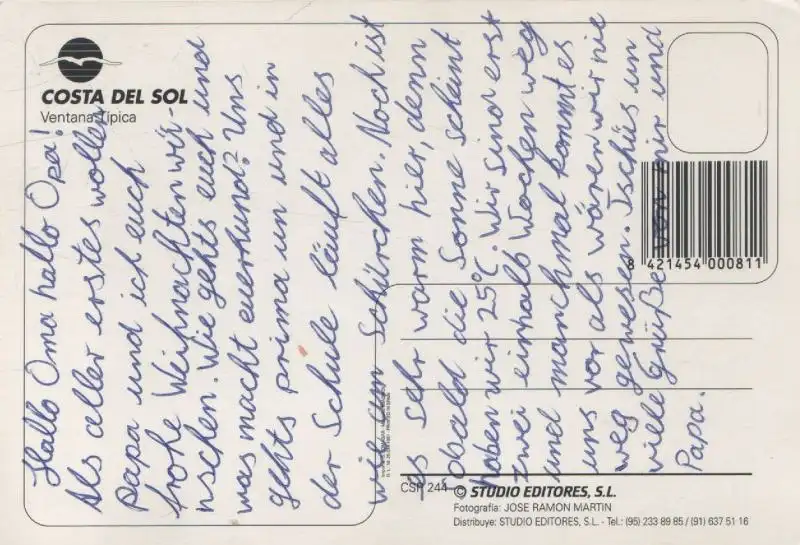 COSTA DEL SOL
Ventana Típica
Hallo Oma hallo Opa!
Als aller erstes wollen
papa und ich euch
frohe Weihnachten wü-
nschen. Wie gehts euch und
was macht euer hund? Uns
gehts prima un und in
der Schule läuft alles
wie am Schürchen. Noch ist
es sehr warm hier, denn
sobald die Sonne scheint
haben wir 25°C. Wir sind erst
zwei einhalb Wochen weg
und manchmal kommt es
uns vor als wären wir nie
weg gewesen. Tschüs un
viele Grüße von mir und
Papa.
8 421454 000811
CSP 244
© STUDIO EDITORES, S.L.
Fotografía: JOSE RAMON MARTIN
Distribuye: STUDIO EDITORES, S.L. - Tel.: (95) 233 89 85 / (91) 637 51 16